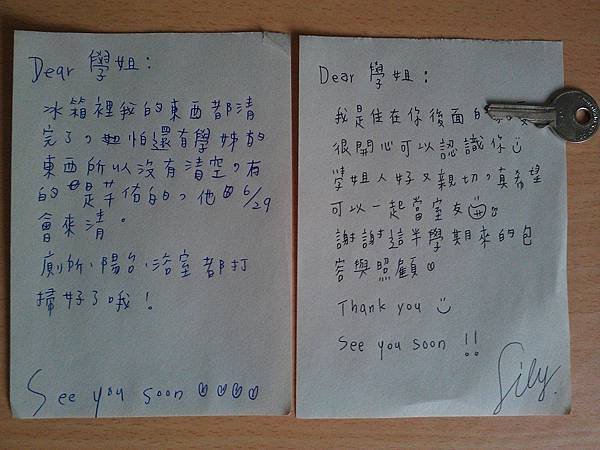 Dear 學姐:
冰箱裡我的東西都清
完了,怕還有學姊的
東西所以沒有清空,有
的是芊佑的,他6/29
會來清。
廁所、陽台、浴室都打
掃好了哦!
See you soon ♡♡♡♡
Dear 學姐:
我是住在你後面的
很開心可以認識你
學姐人好又親切,真希望
可以一起當室友
謝謝這半學期來的包
容與照顧♡
Thank you
See you soon !!
Sily